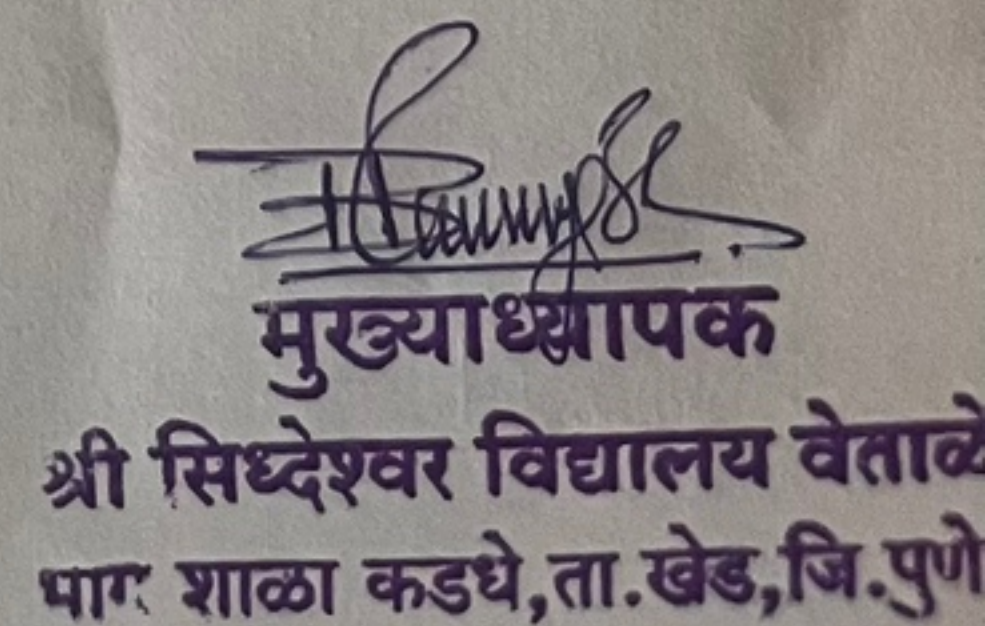 मुख्याध्यापक
श्री सिध्देश्वर विद्यालय वेताळे
भाग शाळा कडधे,ता.खेड,जि.पुणे